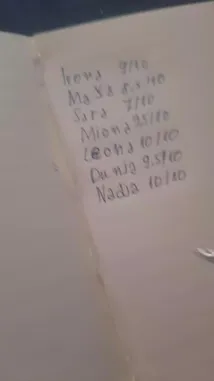 Irena 9/10
Maša 8.5/10
Sara 7/10
Miona 9.5/10
Leona 10/10
Dunja 9.5/10
Nadja 10/10